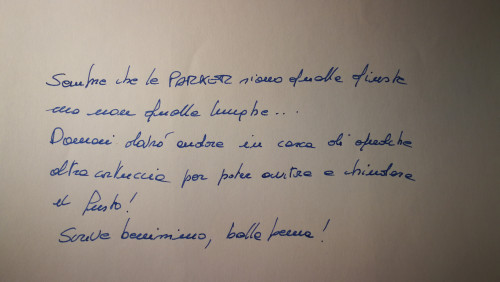 Sembra che le PARKER siano quelle giuste
ma non quelle lunghe...
Domani dovrò andare in cerca di qualche
altra cartuccia per poter avvitare e chiudere
il fusto!
Scrive benissimo, bella penna!